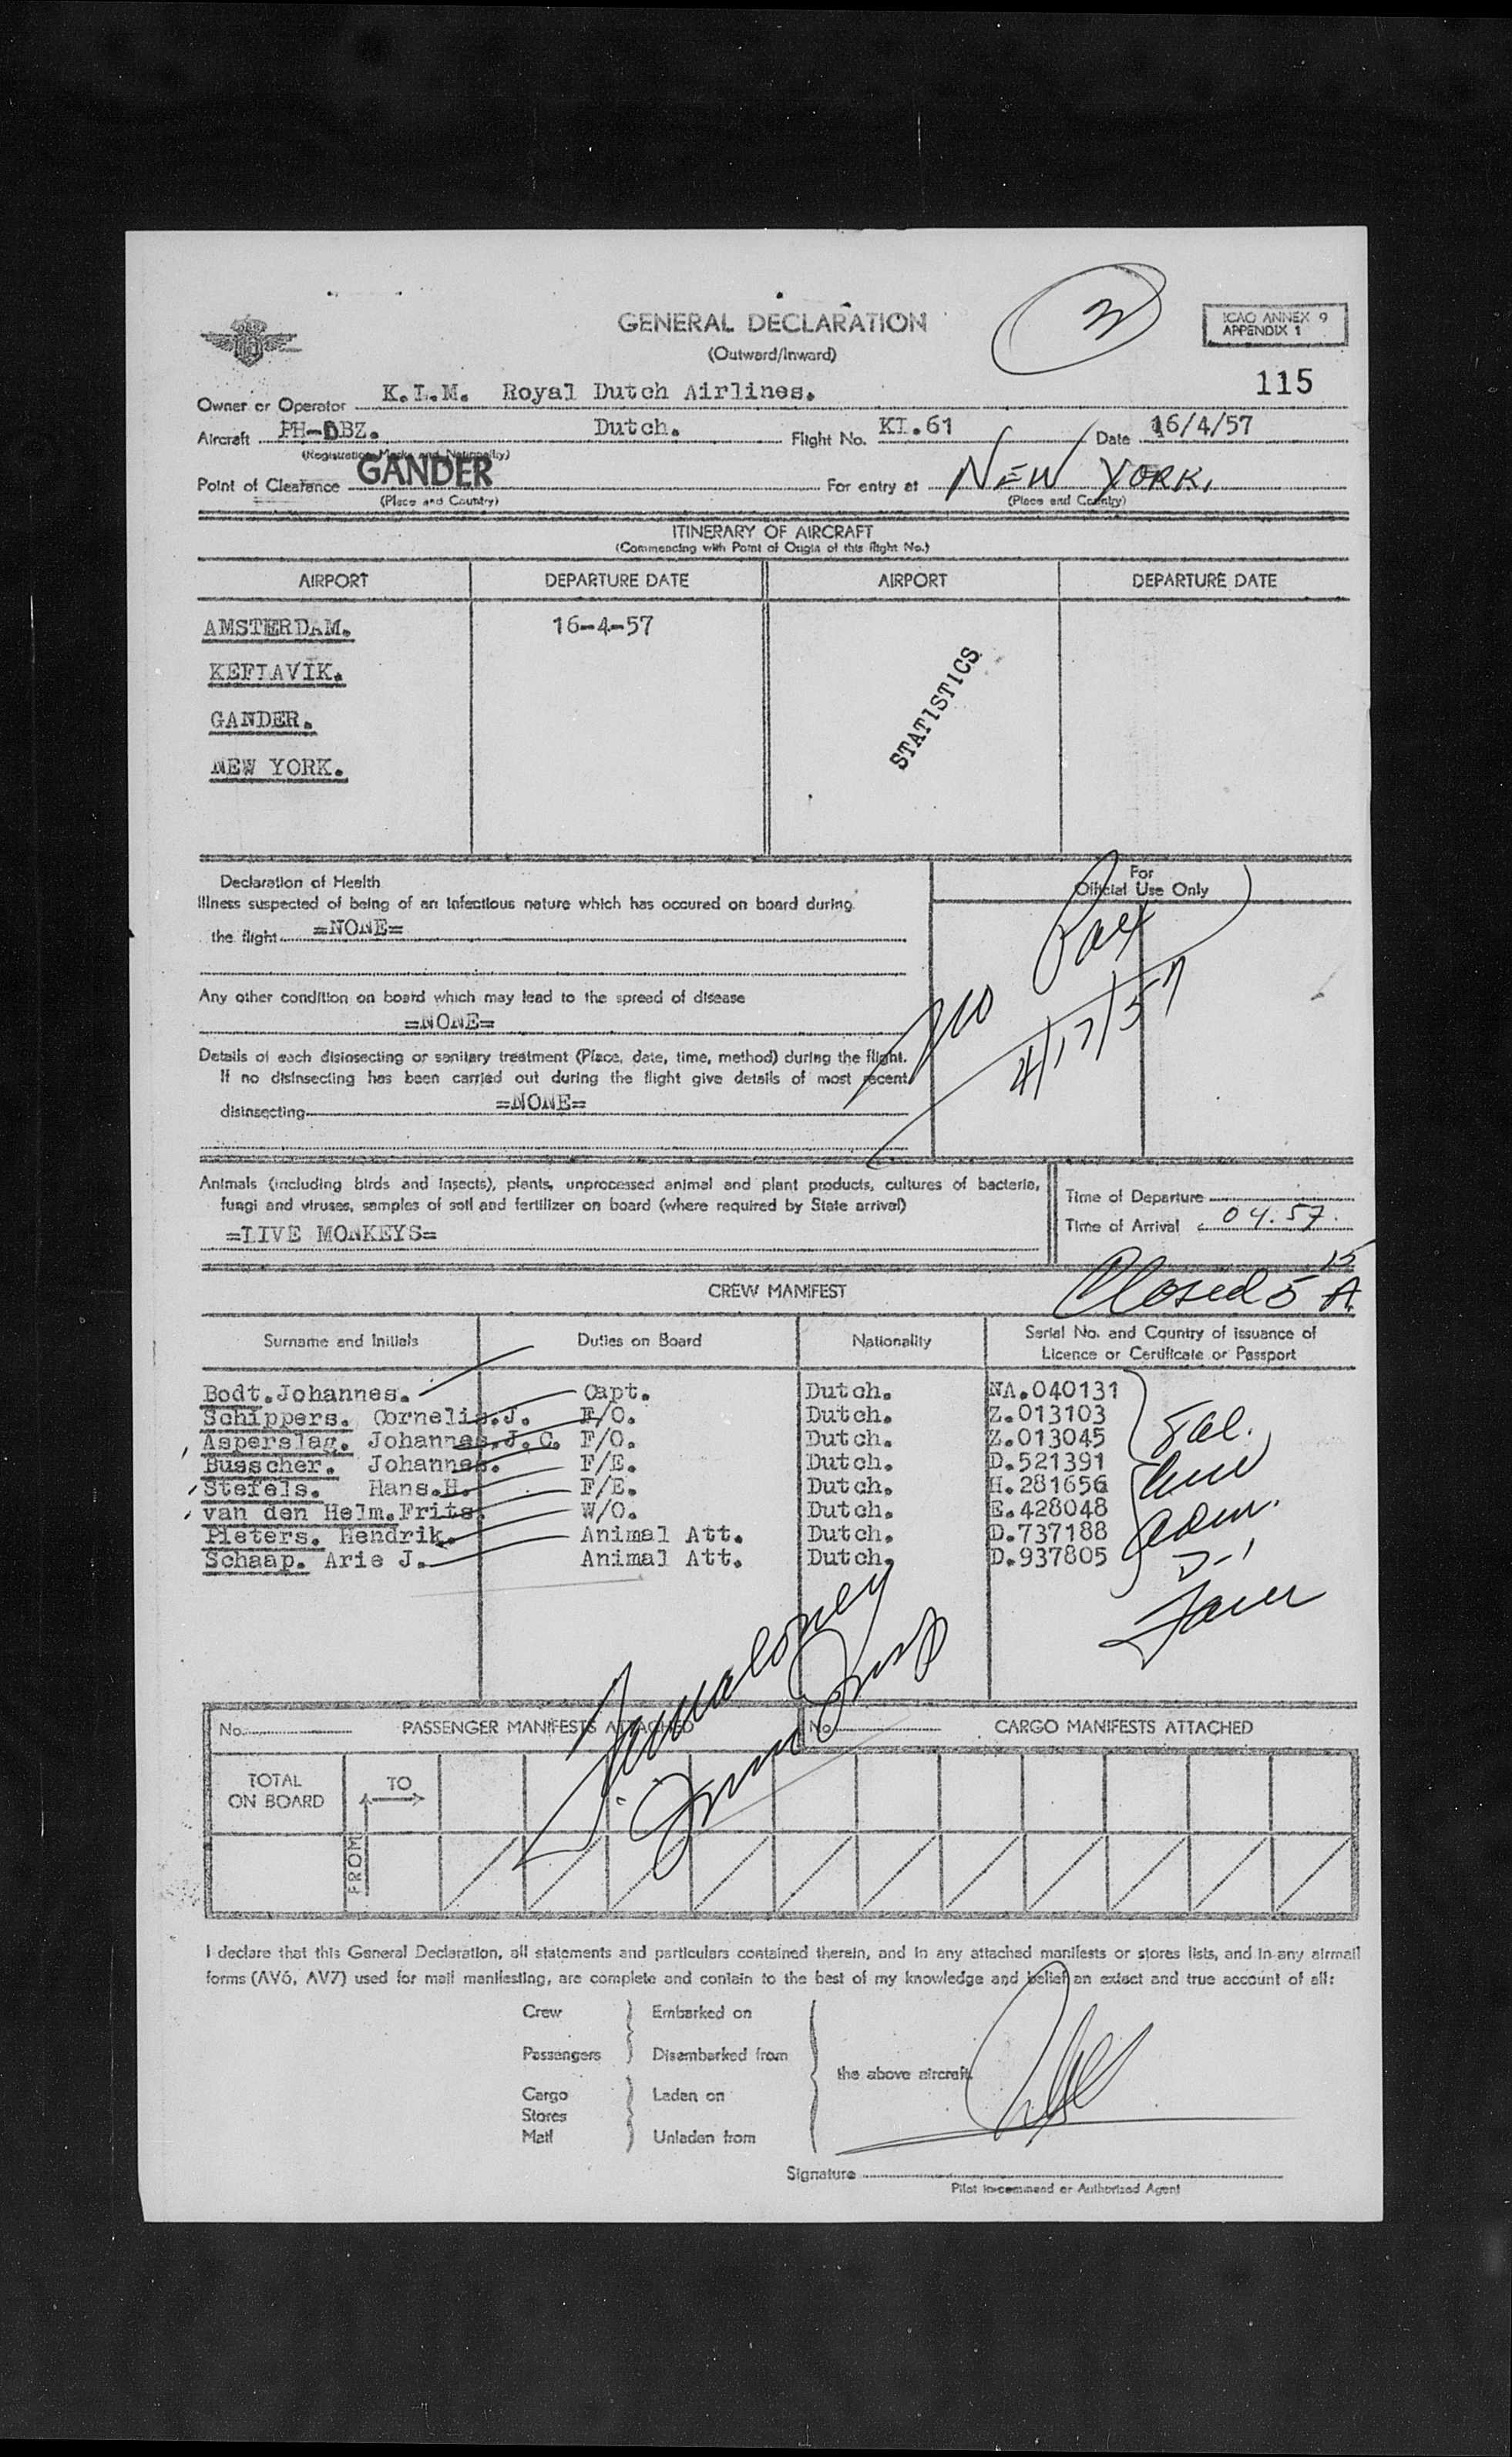 GENERAL DECLARATION
(Outward/Inward)
ICAO ANNEX 9
APPENDIX 1
115
Owner or Operator K.L.M. Royal Dutch Airlines.
Aircraft PH-DBZ. Dutch. Flight No. KL.61 Date 16/4/57
(Registration Marks and Nationality)
Point of Clearance GANDER For entry at NEW YORK.
(Place and Country) (Place and Country)
ITINERARY OF AIRCRAFT
(Commencing with Point of Origin of this flight No.)
AIRPORT DEPARTURE DATE AIRPORT DEPARTURE DATE
AMSTERDAM. 16-4-57
KEFLAVIK.
GANDER.
NEW YORK.
STATISTICS
Declaration of Health
Illness suspected of being of an infectious nature which has occured on board during
the flight =NONE=
Any other condition on board which may lead to the spread of disease
=NONE=
Details of each disinsecting or sanitary treatment (Place, date, time, method) during the flight.
If no disinsecting has been carried out during the flight give details of most recent
disinsecting =NONE=
For
Official Use Only
No Pax
4/17/57
Animals (including birds and insects), plants, unprocessed animal and plant products, cultures of bacteria,
fungi and viruses, samples of soil and fertilizer on board (where required by State arrival)
=LIVE MONKEYS=
Time of Departure
Time of Arrival 04.57.
Closed 5 15 A.
CREW MANIFEST
Surname and Initials Duties on Board Nationality Serial No. and Country of issuance of
Licence or Certificate or Passport
Bodt.Johannes. Capt. Dutch. NA.040131
Schippers. Cornelis.J. F/O. Dutch. Z.013103
Asperslag. Johannes.J.C. F/O. Dutch. Z.013045
Busscher. Johannes. F/E. Dutch. D.521391
Stefels. Hans.H. F/E. Dutch. H.281656
van den Helm.Frits. W/O. Dutch. E.428048
Pieters. Hendrik. Animal Att. Dutch. D.737188
Schaap. Arie J. Animal Att. Dutch. D.937805
No. PASSENGER MANIFESTS ATTACHED No. CARGO MANIFESTS ATTACHED
TOTAL
ON BOARD
TO
FROM
I declare that this General Declaration, all statements and particulars contained therein, and in any attached manifests or stores lists, and in any airmail
forms (AV6, AV7) used for mail manifesting, are complete and contain to the best of my knowledge and belief an extact and true account of all:
Crew Embarked on
Passengers Disembarked from
the above aircraft.
Cargo Laden on
Stores
Mail Unladen from
Signature
Pilot in-command or Authorized Agent